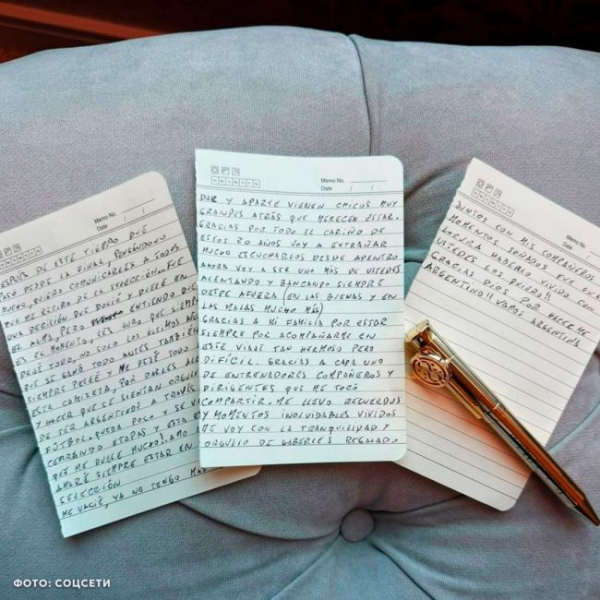 Memo No.
Date / /
DE ESTE TIEMPO QUE
PASÓ DESDE LA FINAL, PENSÁNDOLO
MUCHO, QUIERO COMUNICARLES A TODOS
MI RETIRO DE LA SELECCIÓN. FUE
UNA DECISIÓN QUE DOLIÓ Y DUELE EN
EL ALMA, PERO ENTIENDO QUE
ES EL MOMENTO. LES JURO QUE SIEMPRE
DEJÉ TODO, NO SOLO LOS ÚLTIMOS AÑOS
QUE SE GANÓ TODO, ANTES TAMBIÉN
SIEMPRE PELEÉ Y ME DEJÉ TODO
ESTA CAMISETA, POR DARLES
Y HACER QUE SE SIENTAN
DE SER ARGENTINOS A TRAVÉS
FÚTBOL. QUEDA POCO Y SE
CERRANDO ETAPAS Y ESTA
QUE ME DUELE MUCHO! AMO
AMARÉ SIEMPRE ESTAR EN
SELECCIÓN
ME VACIÉ, YA NO TENGO MÁS
Memo No.
Date / /
DAR Y APARTE VIENEN CHICOS MUY
GRANDES ATRÁS QUE MERECEN ESTAR.
GRACIAS POR TODO EL CARIÑO DE
ESTOS 20 AÑOS VOY A EXTRAÑAR
MUCHO ESCUCHARLOS DESDE ADENTRO
AHORA VOY A SER UNO MÁS DE USTEDES
ALENTANDO Y BANCANDO SIEMPRE
DESDE AFUERA (EN LAS BUENAS Y EN
LAS MALAS MUCHO MÁS)
GRACIAS A MI FAMILIA POR ESTAR
SIEMPRE POR ACOMPAÑARME EN
ESTE VIAJE TAN HERMOSO PERO
DIFÍCIL. GRACIAS A CADA UNO
DE ENTRENADORES COMPAÑEROS Y
DIRIGENTES QUE ME TOCÓ
COMPARTIR. ME LLEVO RECUERDOS
Y MOMENTOS INOLVIDABLES VIVIDOS
ME VOY CON LA TRANQUILIDAD Y
ORGULLO DE HABERLES REGALADO
Memo No.
Date / /
JUNTOS CON MIS COMPAÑEROS
MOMENTOS SOÑADOS FUE UNA
LOCURA HABERLO VIVIDO CON
USTEDES LOS QUIERO!!
GRACIAS DIOS POR HACERME
ARGENTINO!! VAMOS ARGENTINA
ФОТО: СОЦСЕТИ